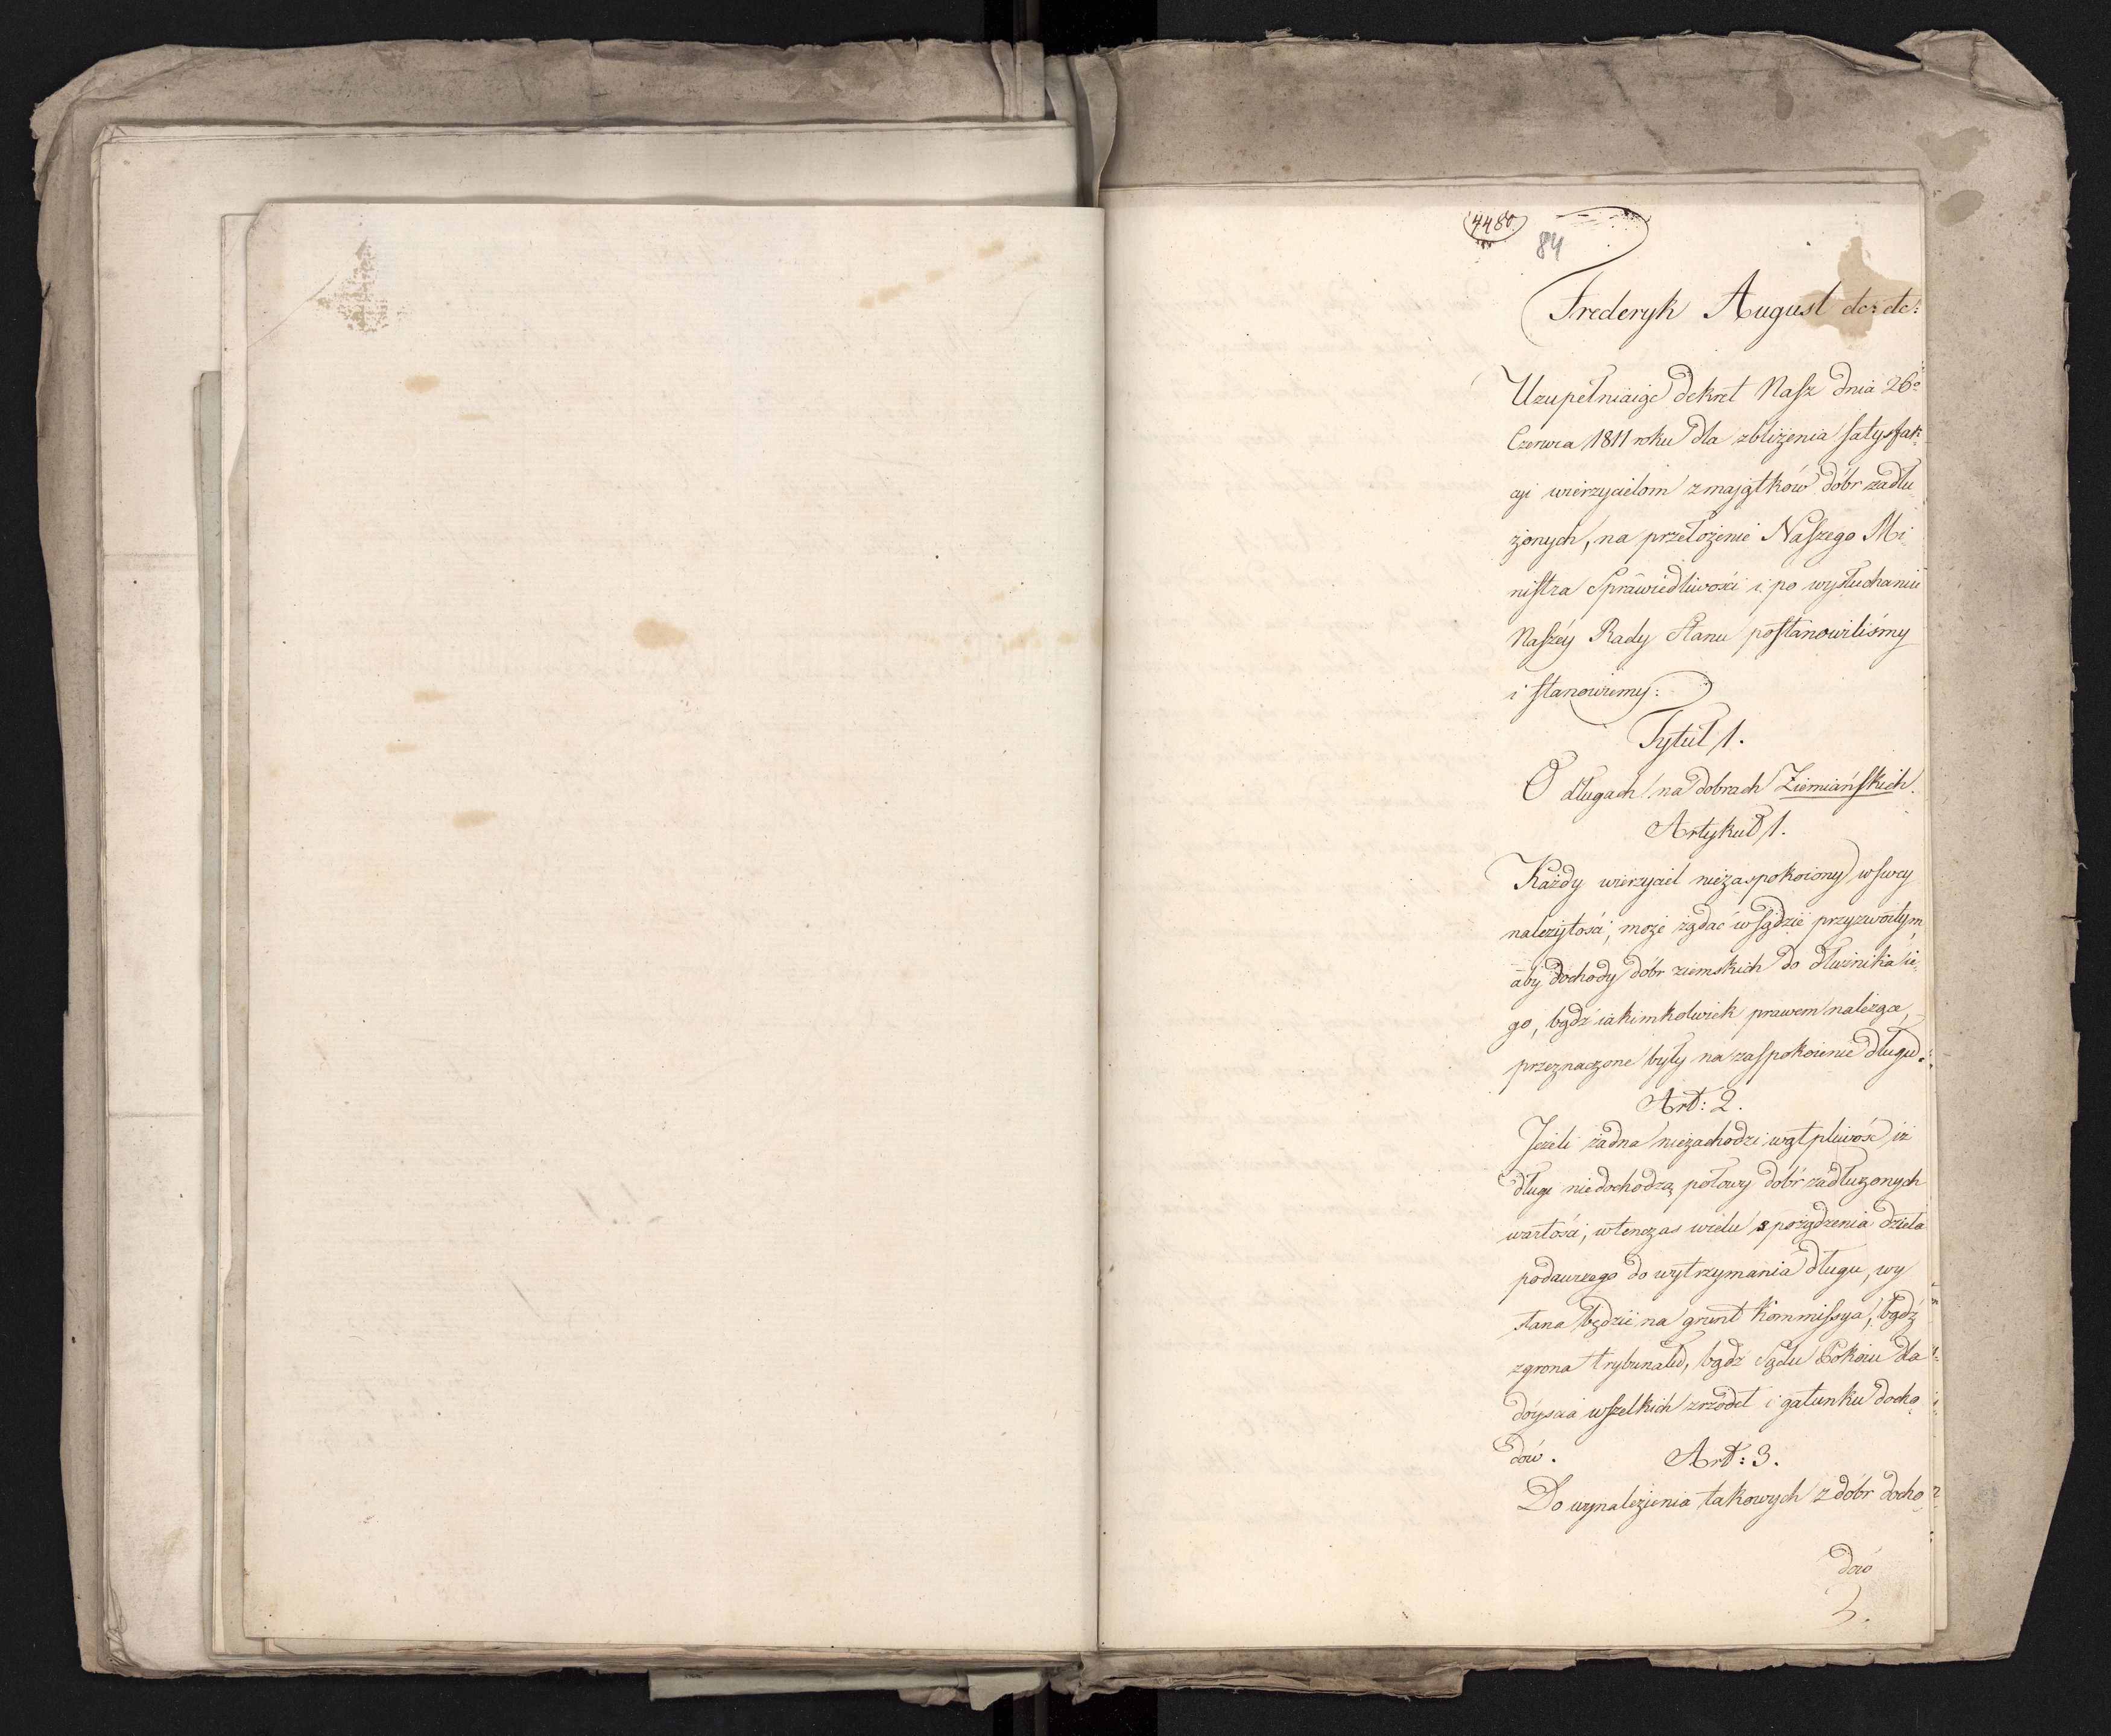 4480.
84
Frederyk August etc: etc:
Uzupełniaiąc dekret Nasz dnia 26º
Czerwca 1811 roku dla zbliżenia satysfak
cyi wierzycielom z majątków dóbr zadłu
żonych, na przełożenie Naszego Mi
nistra Sprawiedliwości i po wysłuchaniu
Naszéy Rady Stanu postanowiliśmy
i stanowiemy:
Tytuł 1.
O długach na dobrach Ziemiańskich.
Artykuł 1.
Każdy wierzyciel niezaspokoiony w swey
należytości, może żądać w Sądzie przyzwoitym,
aby dochody dóbr ziemskich do dłużnika ie
go, bądź iakimkolwiek prawem należące,
przeznaczone były na zaspokoienie długu.
Art: 2.
Jeżeli żadna niezachodzi wątpliwość iż
długi niedochodzą połowy dóbr zadłużonych
wartości, wtenczas wielu sporządzenia dzieła
podawczego do wytrzymania długu, wy
słana będzie na grunt Kommissya, bądź
zgrona trybunału, bądź Sądu Pokoiu dla
dóyścia wszelkich zrzodeł i gatunku docho
dów. Art: 3.
Do wynalezienia takowych z dóbr docho
dów